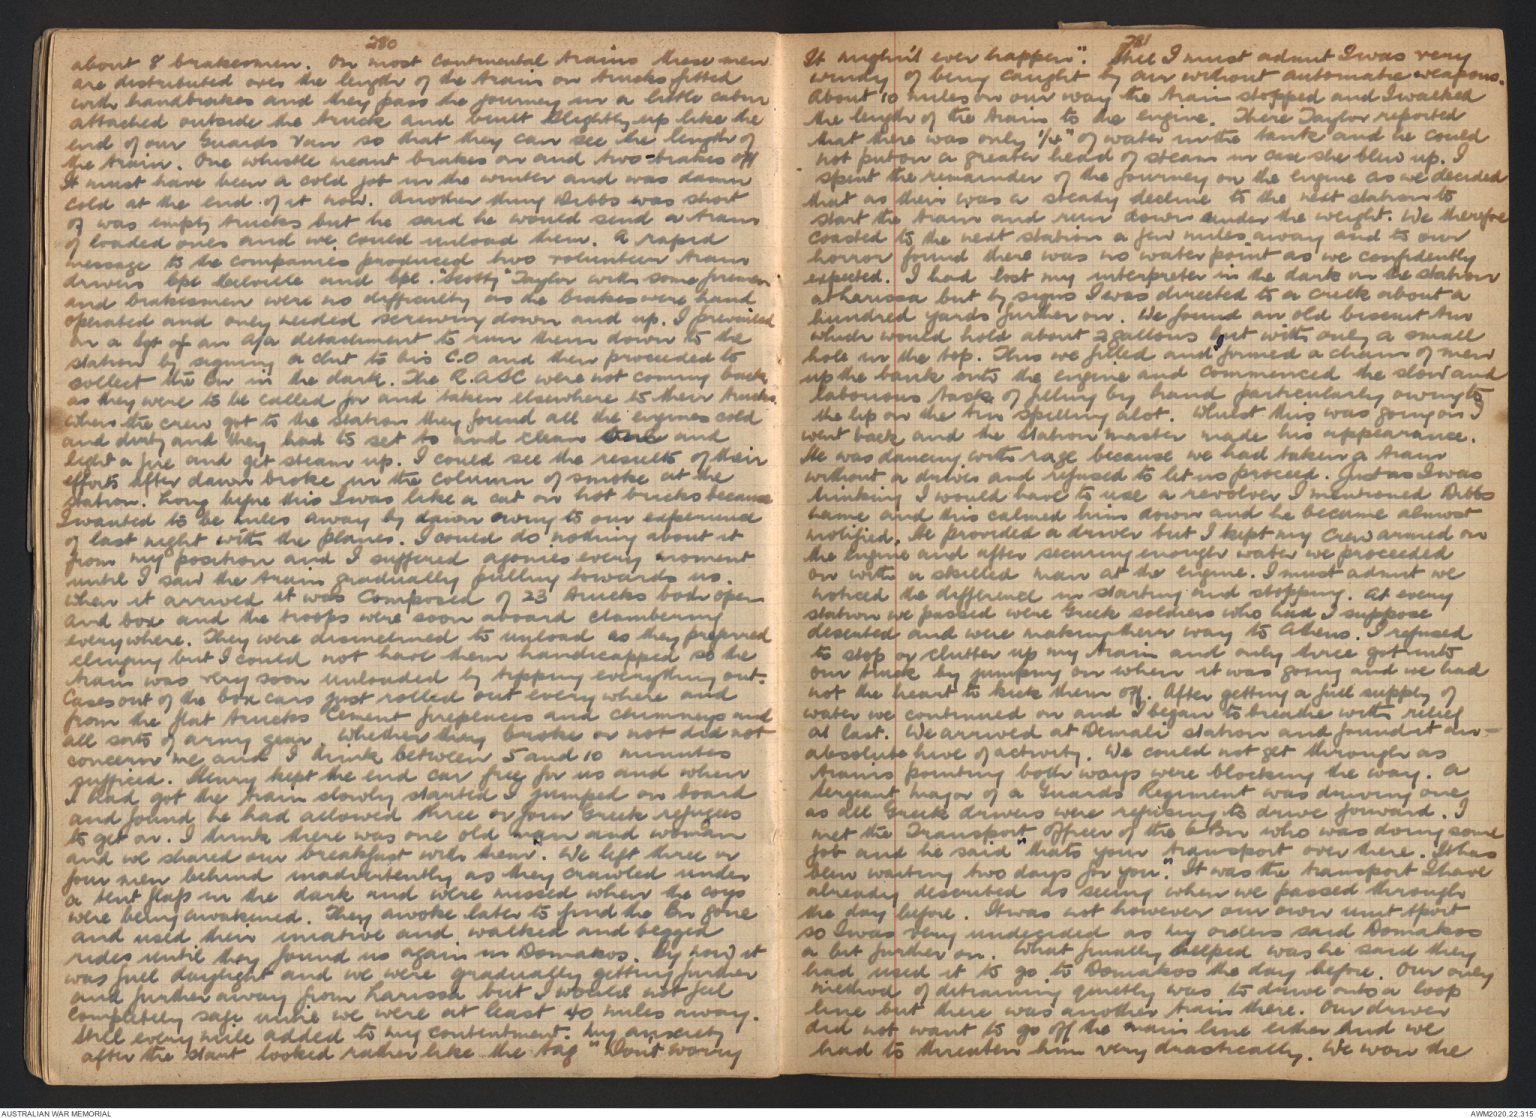 280
about 8 brakesmen. On most continental trains these men
are distributed over the length of the train on trucks fitted
with handbrakes and they pass the journey in a little cabin
attached outside the truck and built slightly up like the
end of our Guards van so that they can see the length of
the train. One whistle meant brakes on and two - brakes off
It must have been a cold job in the winter and was damn
cold at the end of it now. Another thing Dibbs was short
of was empty trucks but he said he would send a train
of loaded ones and we could unload them. A rapid
message to the companies produced two volunteer train
drivers Cpl Melville and Cpl. "Scotty" Taylor with some firemen
and brakesmen were no difficulty as the brakes were hand
operated and only needed screwing down and up. I prevailed
on a Sgt of an A/a detachment to run them down to the
station by signing a chit to his C.O and then proceeded to
collect the Bn in the dark. The R.ASC were not coming back
as they were to be called for and taken elsewhere to their trucks
When the crew got to the Station they found all the engines cold
and dirty and they had to set to and clean one and
light a fire and get steam up. I could see the results of their
efforts after dawn broke in the column of smoke at the
station. Long before this I was like a cat on hot bricks because
I wanted to be miles away by dawn owing to our experience
of last night with the planes. I could do nothing about it
from my position and I suffered agonies every moment
until I saw the train gradually pulling towards us.
When it arrived it was composed of 23 trucks both open
and box and the troops were soon aboard clambering
everywhere. They were disinclined to unload as they preferred
clinging but I could not have them handicapped so the
train was very soon unloaded by tipping everything out.
Cases out of the box cars just rolled out every where and
from the flat trucks Cement fireplaces and chimneys and
all sorts of army gear. Whether they broke or not did not
concern me and I think between 5 and 10 minutes
sufficed. Henry kept the end car free for us and when
I had got the train slowly started I jumped on board
and found he had allowed three or four Greek refugees
to get on. I think there was one old man and woman
and we shared our breakfast with them. We left three or
four men behind inadvertently as they crawled under
a tent flap in the dark and were missed when the coys
were being awakened. They awoke later to find the Bn gone
and used their iniative and walked and begged
rides until they found us again in Domakos. By now it
was full daylight and we were gradually getting further
and further away from Larissa but I would not feel
completely safe until we were at least 40 miles away.
Still every mile added to my contentment. My anxiety
after the start looked rather like the tag "Don't worry
281
It mighn't ever happen". Still I must admit I was very
windy of being caught by air without automatic weapons.
About 10 miles on our way the train stopped and I walked
the length of the train to the engine. There Taylor reported
that there was only 1/4" of water in the tank and he could
not put on a greater head of steam in case she blew up. I
spent the remainder of the journey on the engine as we decided
that as there was a steady decline to the next station to
start the train and run down under the weight. We therefore
coasted to the next station a few miles away and to our
horror found there was no water point as we confidently
expected. I had lost my interpreter in the dark on the station
at Larissa but by signs I was directed to a creek about a
hundred yards further on. We found an old biscuit tin
which would hold about 2 gallons but with only a small
hole in the top. This we filled and I formed a chain of men
up the bank onto the engine and commenced the slow and
laborious task of filling by hand particularly owing to
the lip on the tin spilling alot. Whilst this was going on I
went back and the Station master made his appearance.
He was dancing with rage because we had taken a train
without a driver and refused to let us proceed. Just as I was
thinking I would have to use a revolver I mentioned Dibbs
name and this calmed him down and he became almost
molified. He provided a driver but I kept my crew armed on
the engine and after securing enough water we proceeded
on with a skilled man at the engine. I must admit we
noticed the difference in starting and stopping. At every
station we passed were Greek soldiers who had I suppose
deserted and were making their way to Athens. I refused
to stop or clutter up my train and only three got into
our truck by jumping on when it was going and we had
not the heart to kick them off. After getting a full supply of
water we continued on and I began to breathe with relief
at last. We arrived at Demali station and found it an-
absolute hive of activity. We could not get through as
trains pointing both ways were blocking the way. A
Sergeant major of a Guards Regiment was driving one
as all Greek drivers were refusing to drive forward. I
met the Transport Officer of the Bn who was doing some
job and he said "thats your transport over there. It has
been waiting two days for you". It was the transport I have
already described as seeing when we passed through
the day before. It was not however our own unit tport
so I was very undecided as my orders said Domakos
a bit further on. What finally helped was he said they
had used it to go to Domakos the day before. Our only
method of detraining quietly was to drive onto a loop
line but there was another train there. Our driver
did not want to go off the main line either and we
had to threaten him very drastically. We won the
AUSTRALIAN WAR MEMORIAL
AWM2020.22.315